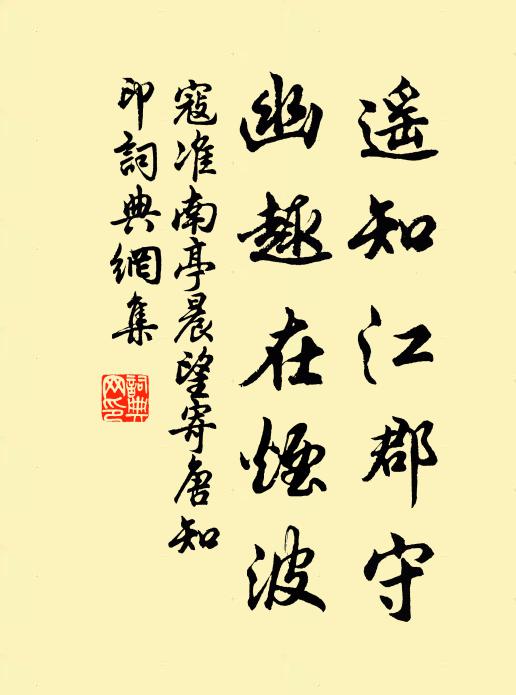 遥知江郡守
幽趣在煙波
寇准南亭晨望寄唐知
印詞典網集
詞典网印